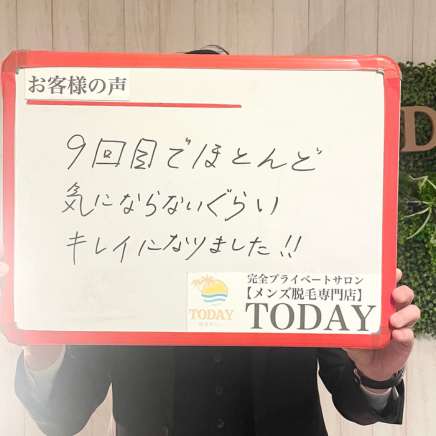 お客様の声
9回目でほとんど
気にならないぐらい
キレイになりました!!
完全プライベートサロン
【メンズ脱毛専門店】
TODAY
TODAY
D